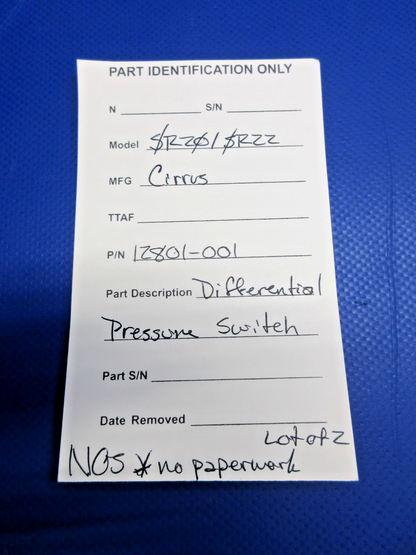 PART IDENTIFICATION ONLY
N ________ S/N ________
Model SR20/SR22
MFG Cirrus
TTAF ________
P/N 12801-001
Part Description Differential
Pressure Switch
Part S/N ________
Date Removed ________
Lot of 2
NOS * no paperwork